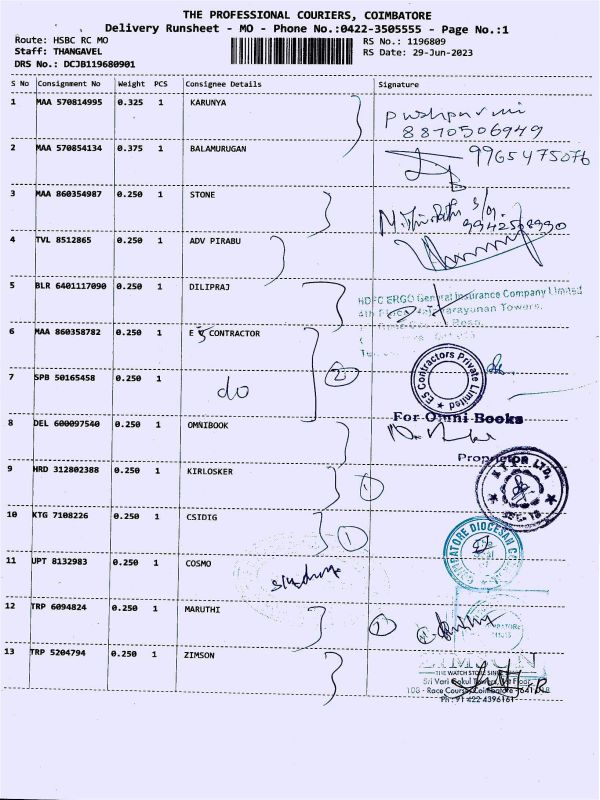 THE PROFESSIONAL COURIERS, COIMBATORE
Delivery Runsheet - MO - Phone No.:0422-3505555 - Page No.:1
Route: HSBC RC MO
RS No.: 1196809
Staff: THANGAVEL
RS Date: 29-Jun-2023
DRS No.: DCJB119680901
S No Consignment No Weight PCS Consignee Details Signature
1 MAA 570814995 0.325 1 KARUNYA
8870506949
2 MAA 570854134 0.375 1 BALAMURUGAN
9965475076
3 MAA 860354987 0.250 1 STONE
4 TVL 8512865 0.250 1 ADV PIRABU
5 BLR 6401117090 0.250 1 DILIPRAJ
HDFC ERGO General Insurance Company Limited
Towers,
6 MAA 860358782 0.250 1 E S CONTRACTOR
2
ES Contractors Private Limited
7 SPB 50165458 0.250 1 do
For Omni Books
8 DEL 600097540 0.250 1 OMNIBOOK
Proprietor
9 HRD 312802388 0.250 1 KIRLOSKER
1
10 KTG 7108226 0.250 1 CSIDIG
1
COIMBATORE DIOCESAN
11 UPT 8132983 0.250 1 COSMO
12 TRP 6094824 0.250 1 MARUTHI
2
13 TRP 5204794 0.250 1 ZIMSON
ZIMSON
THE WATCH STORE SINCE
Sri Vari Gokul Towers, Floor,
108 - Race Course, Coimbatore - 641 018
Ph : 91 422 4396161